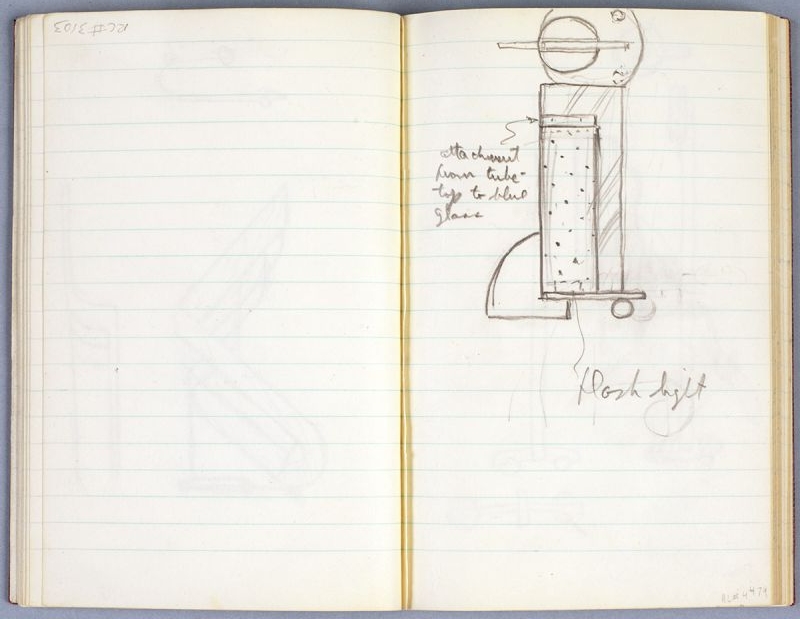 RC#3103
attachment
from tube-
top to blue
glass
flash light